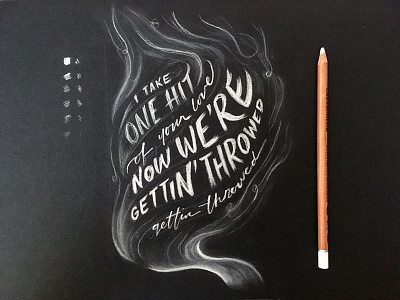 I TAKE
ONE HIT
of your love
NOW WE'RE
GETTIN' THROWED
gettin throwed